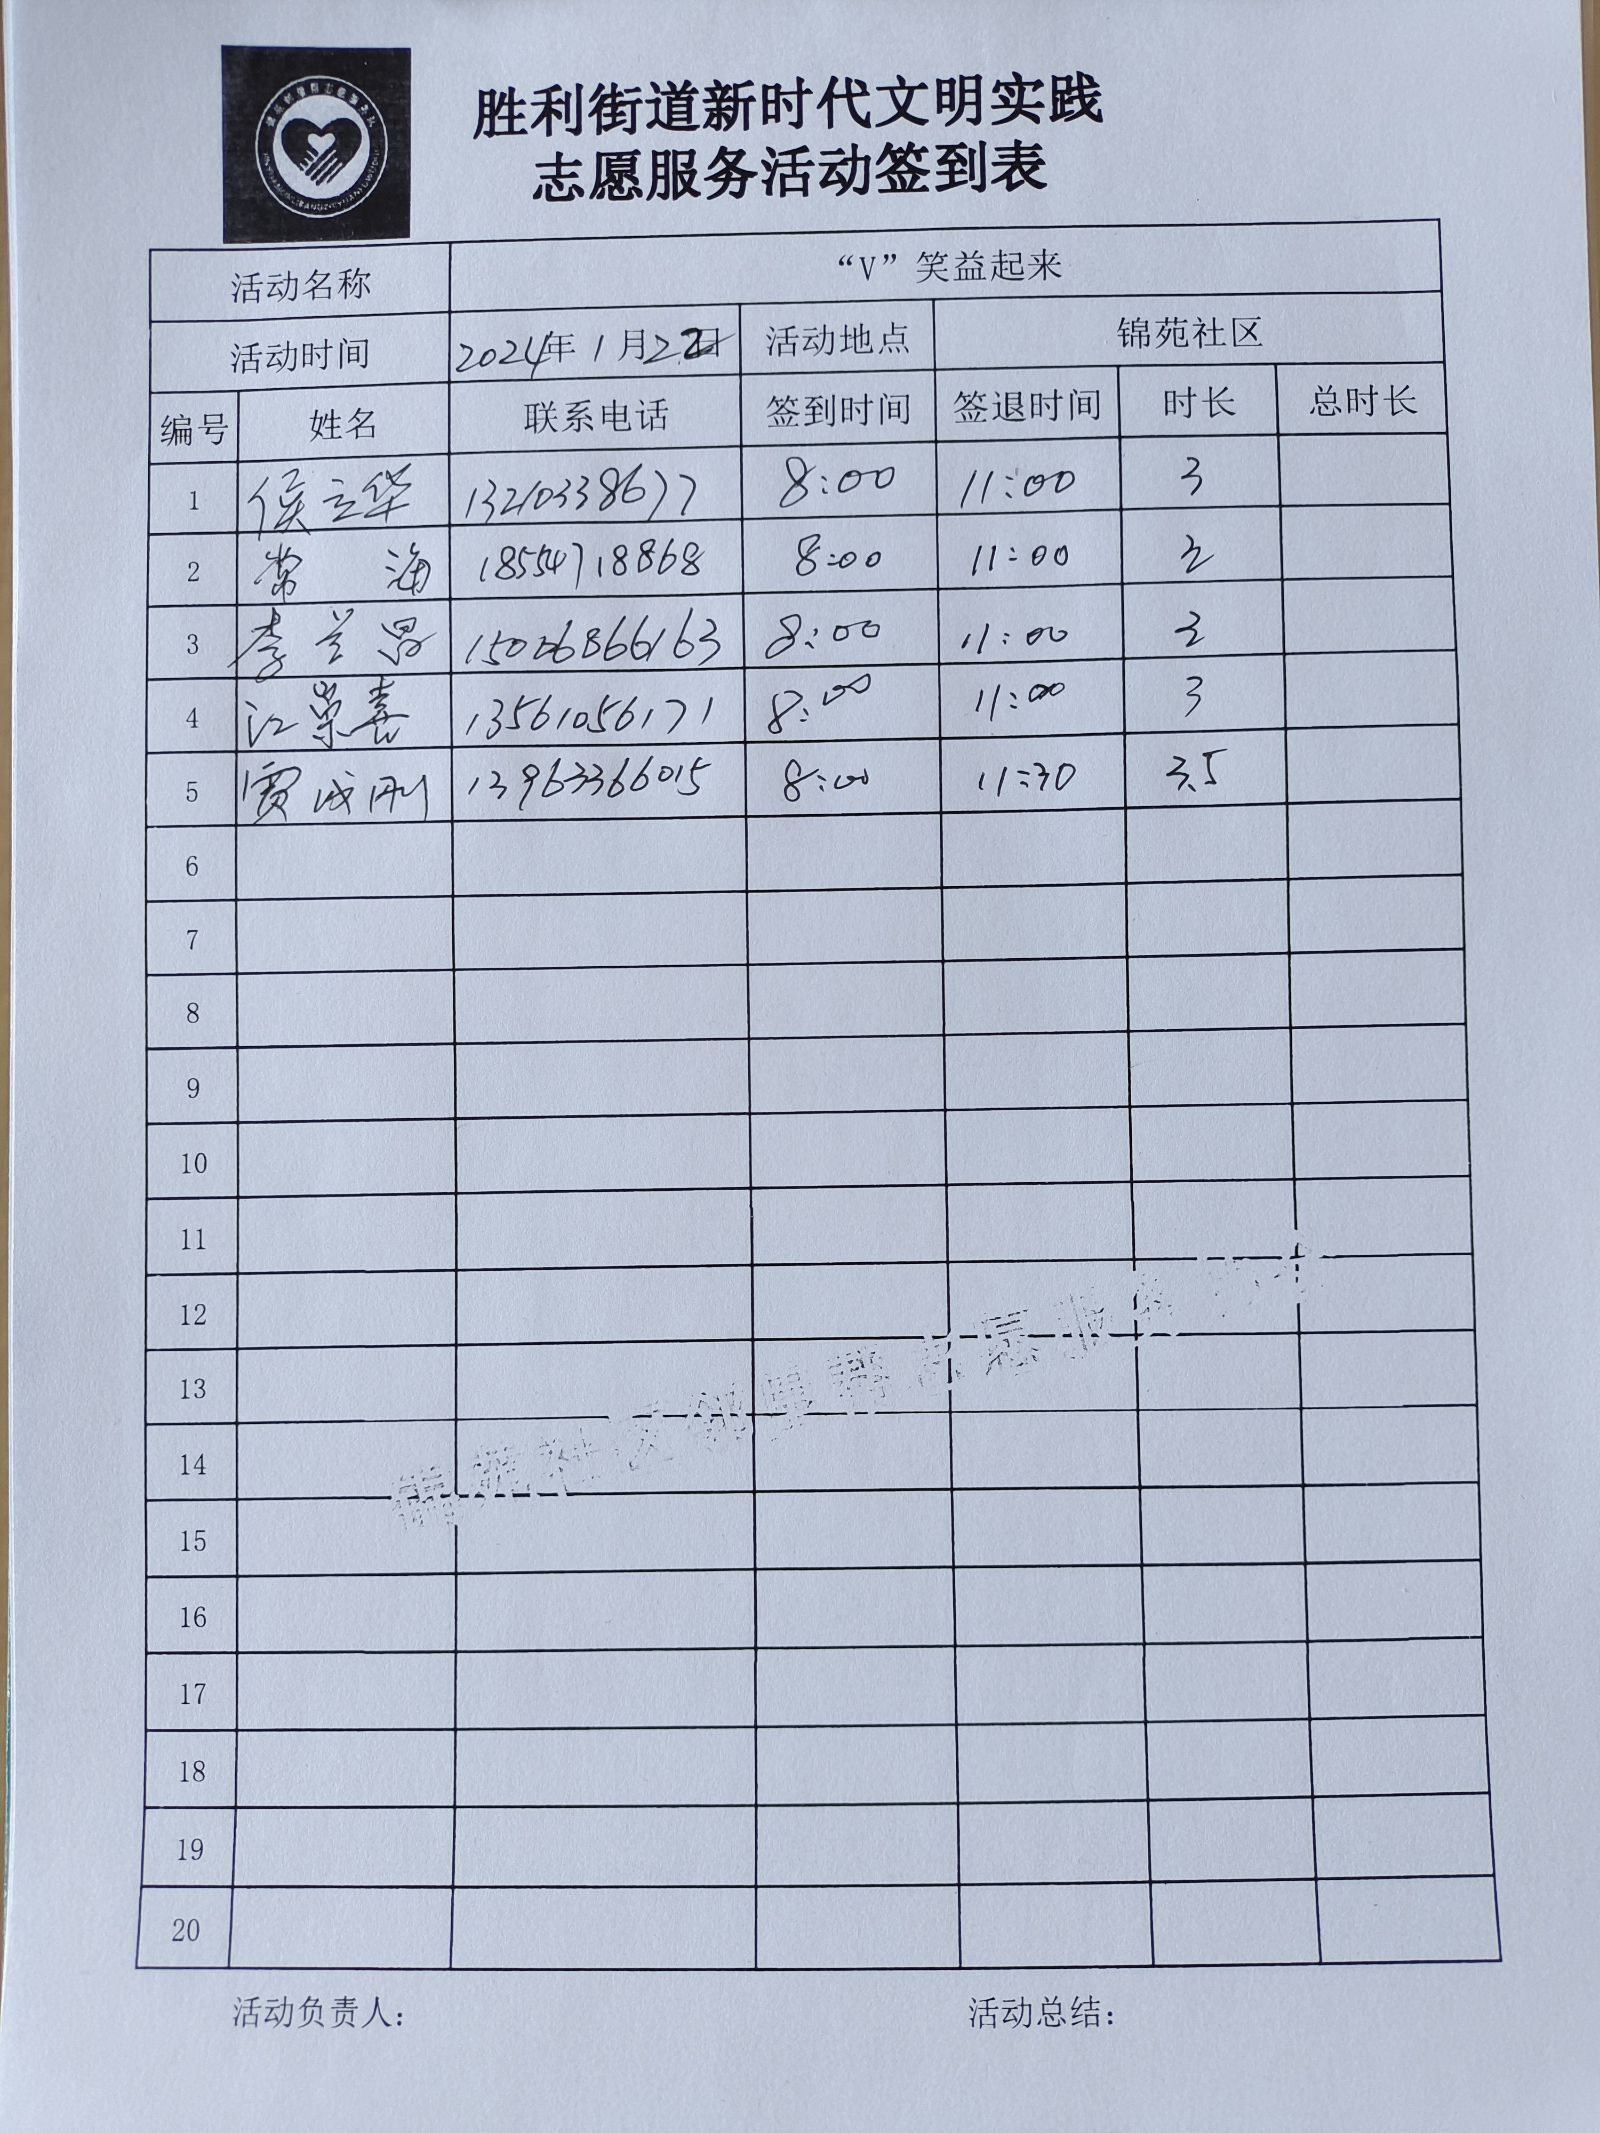 胜利街道新时代文明实践
志愿服务活动签到表
活动名称 “V”笑益起来
活动时间 2024年1月22日 活动地点 锦苑社区
编号 姓名 联系电话 签到时间 签退时间 时长 总时长
1 侯立华 13210338677 8:00 11:00 3
2 常海 18554718868 8:00 11:00 3
3 李兰 15006866163 8:00 11:00 3
4 江崇喜 13561056171 8:00 11:00 3
5 贾成刚 13963366015 8:00 11:30 3.5
6
7
8
9
10
11
12
13
14
15
16
17
18
19
20
锦苑社区邻里帮志愿服务
活动负责人： 活动总结：